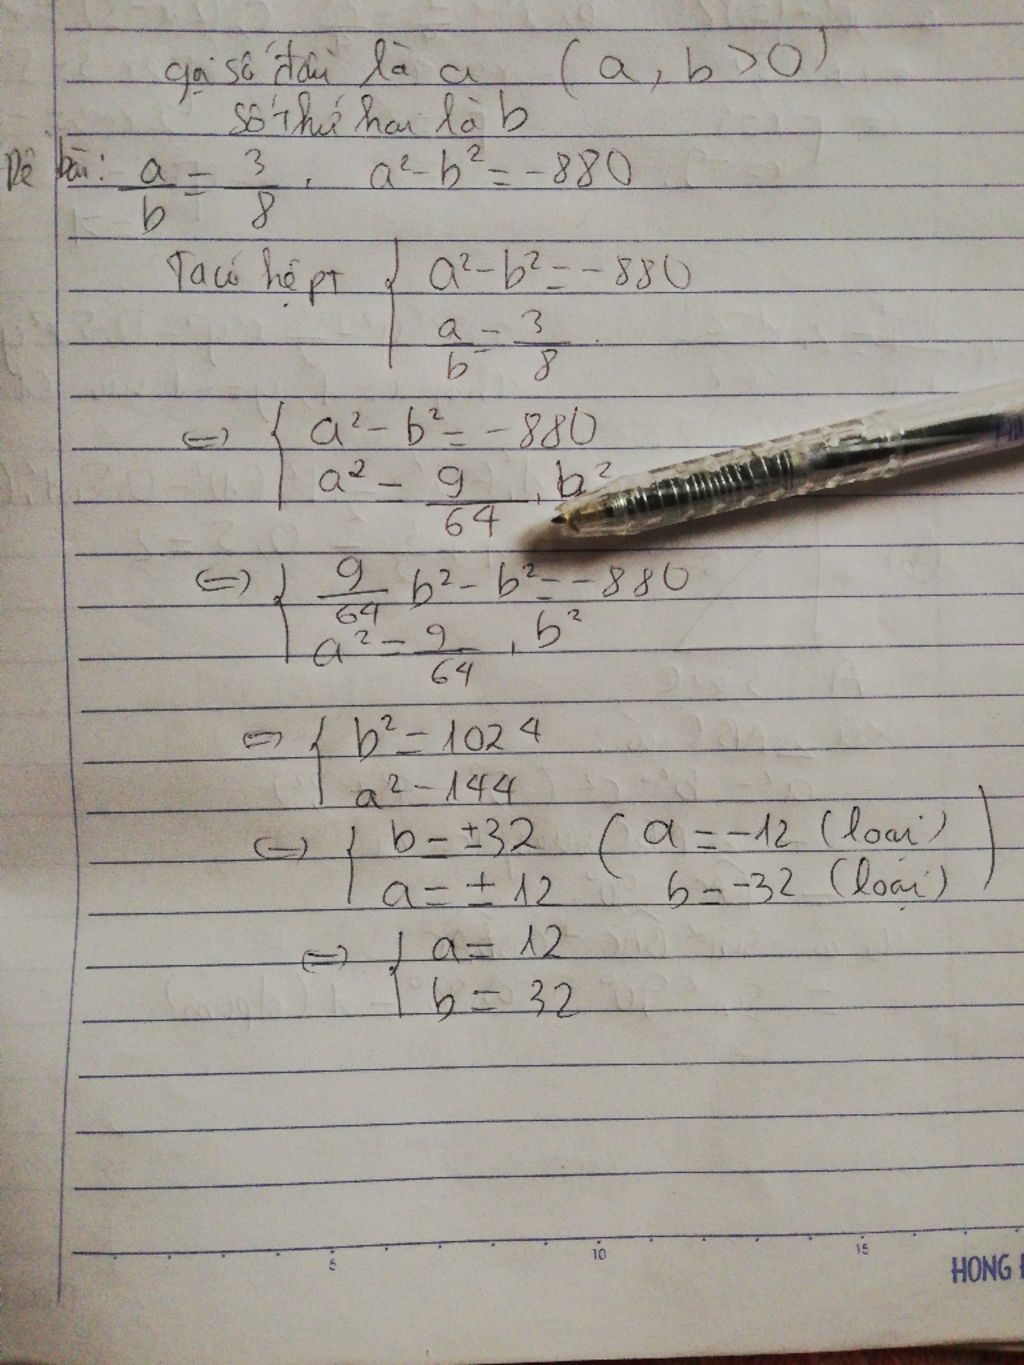 gọi số đầu là a (a, b > 0)
số thứ hai là b
Đề bài: a/b = 3/8, a² - b² = -880
Ta có hệ PT { a² - b² = -880
a/b = 3/8
<=> { a² - b² = -880
a² = 9/64 . b²
<=> { 9/64 b² - b² = -880
a² = 9/64 . b²
<=> { b² = 1024
a² = 144
<=> { b = ±32 ( a = -12 (loại)
a = ±12 b = -32 (loại) )
<=> { a = 12
b = 32
5 10 15
HONG